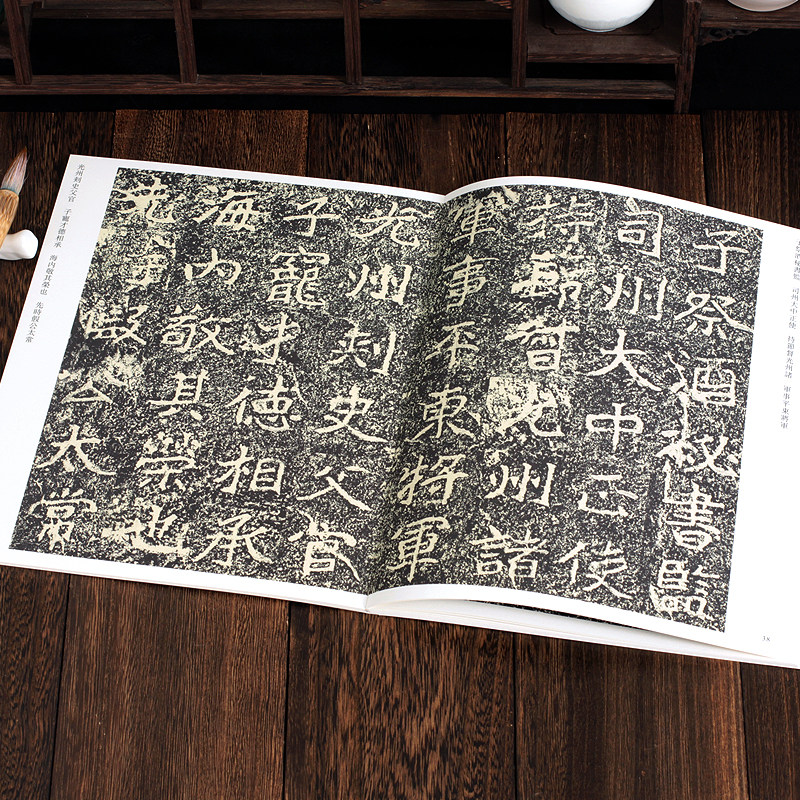 子祭酒秘書監
司州大中正使
持節督光州諸
軍事平東將軍
光州刾史父官
子寵才德相承
海内敬其榮也
先時假公太常
司州大中正使　持節督光州諸　軍事平東將軍
38
光州刺史父官　子寵才德相承　海内敬其榮也　先時假公太常